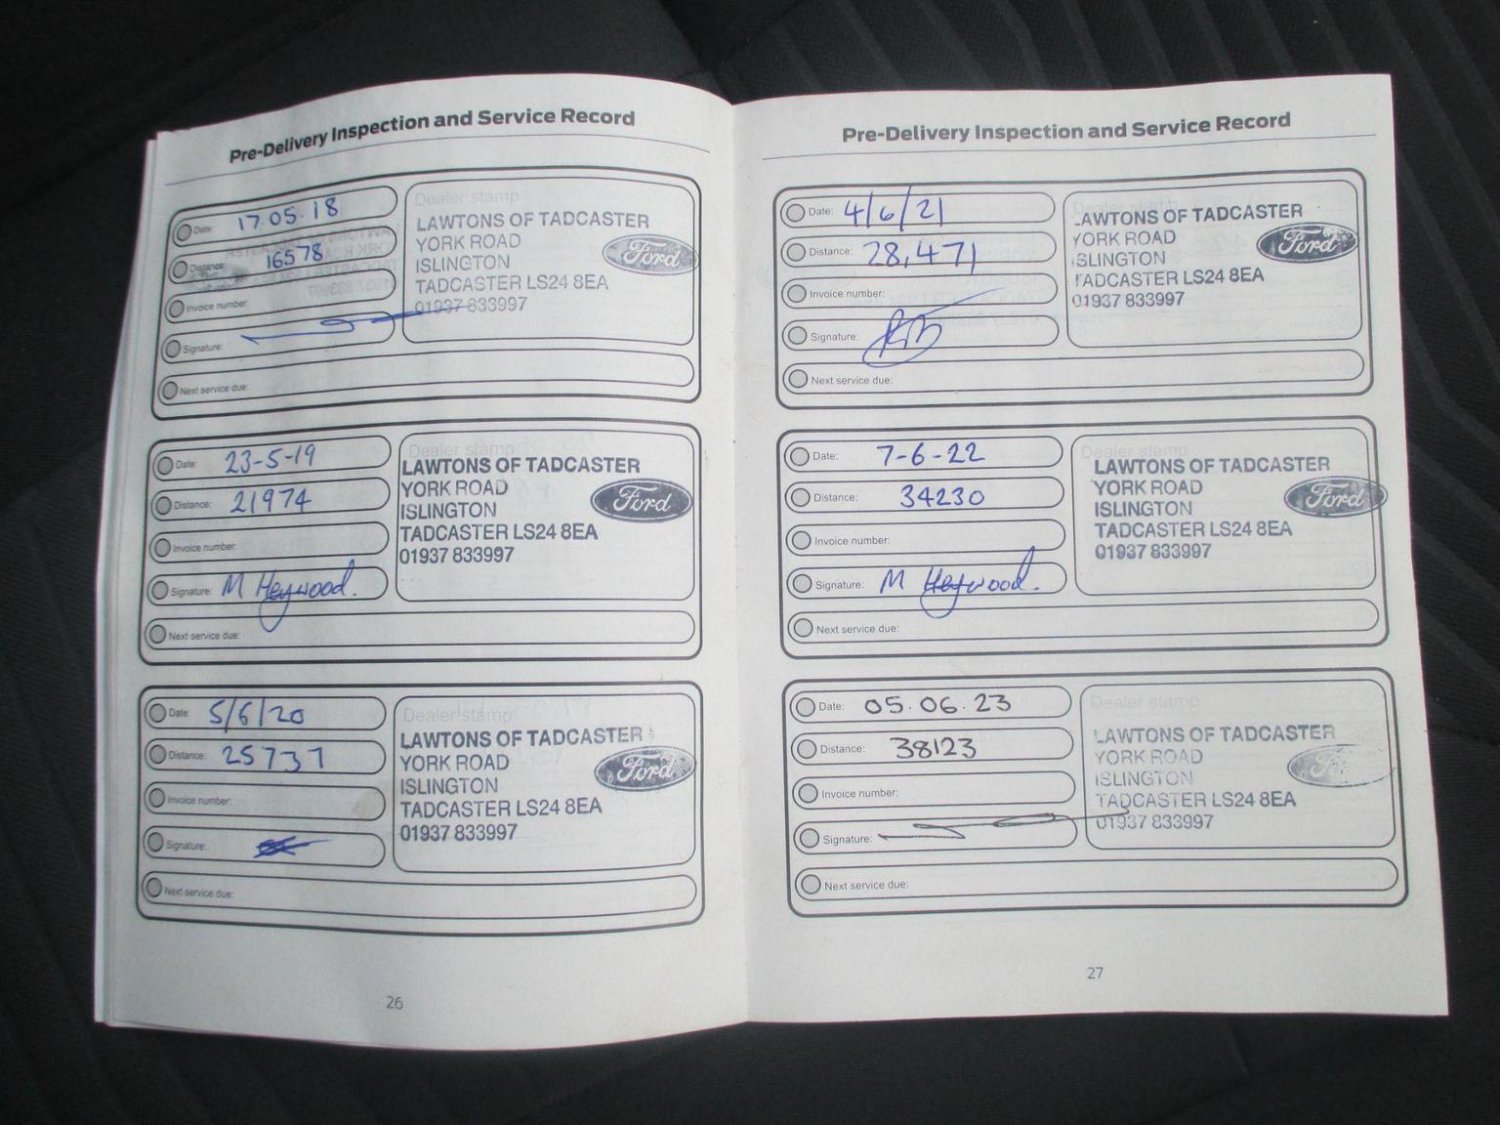 Pre-Delivery Inspection and Service Record
Date: 17.05.18
Distance: 16578
Invoice number:
Signature:
Next service due:
Dealer stamp
LAWTONS OF TADCASTER
YORK ROAD
ISLINGTON
TADCASTER LS24 8EA
01937 833997
Ford
Date: 23-5-19
Distance: 21974
Invoice number:
Signature: M Heywood.
Next service due:
Dealer stamp
LAWTONS OF TADCASTER
YORK ROAD
ISLINGTON
TADCASTER LS24 8EA
01937 833997
Ford
Date: 5/6/20
Distance: 25737
Invoice number:
Signature:
Next service due:
Dealer stamp
LAWTONS OF TADCASTER
YORK ROAD
ISLINGTON
TADCASTER LS24 8EA
01937 833997
Ford
26
Pre-Delivery Inspection and Service Record
Date: 4/6/21
Distance: 28,471
Invoice number:
Signature:
Next service due:
Dealer stamp
LAWTONS OF TADCASTER
YORK ROAD
ISLINGTON
TADCASTER LS24 8EA
01937 833997
Ford
Date: 7-6-22
Distance: 34230
Invoice number:
Signature: M Heywood.
Next service due:
Dealer stamp
LAWTONS OF TADCASTER
YORK ROAD
ISLINGTON
TADCASTER LS24 8EA
01937 833997
Ford
Date: 05.06.23
Distance: 38123
Invoice number:
Signature:
Next service due:
Dealer stamp
LAWTONS OF TADCASTER
YORK ROAD
ISLINGTON
TADCASTER LS24 8EA
01937 833997
Ford
27